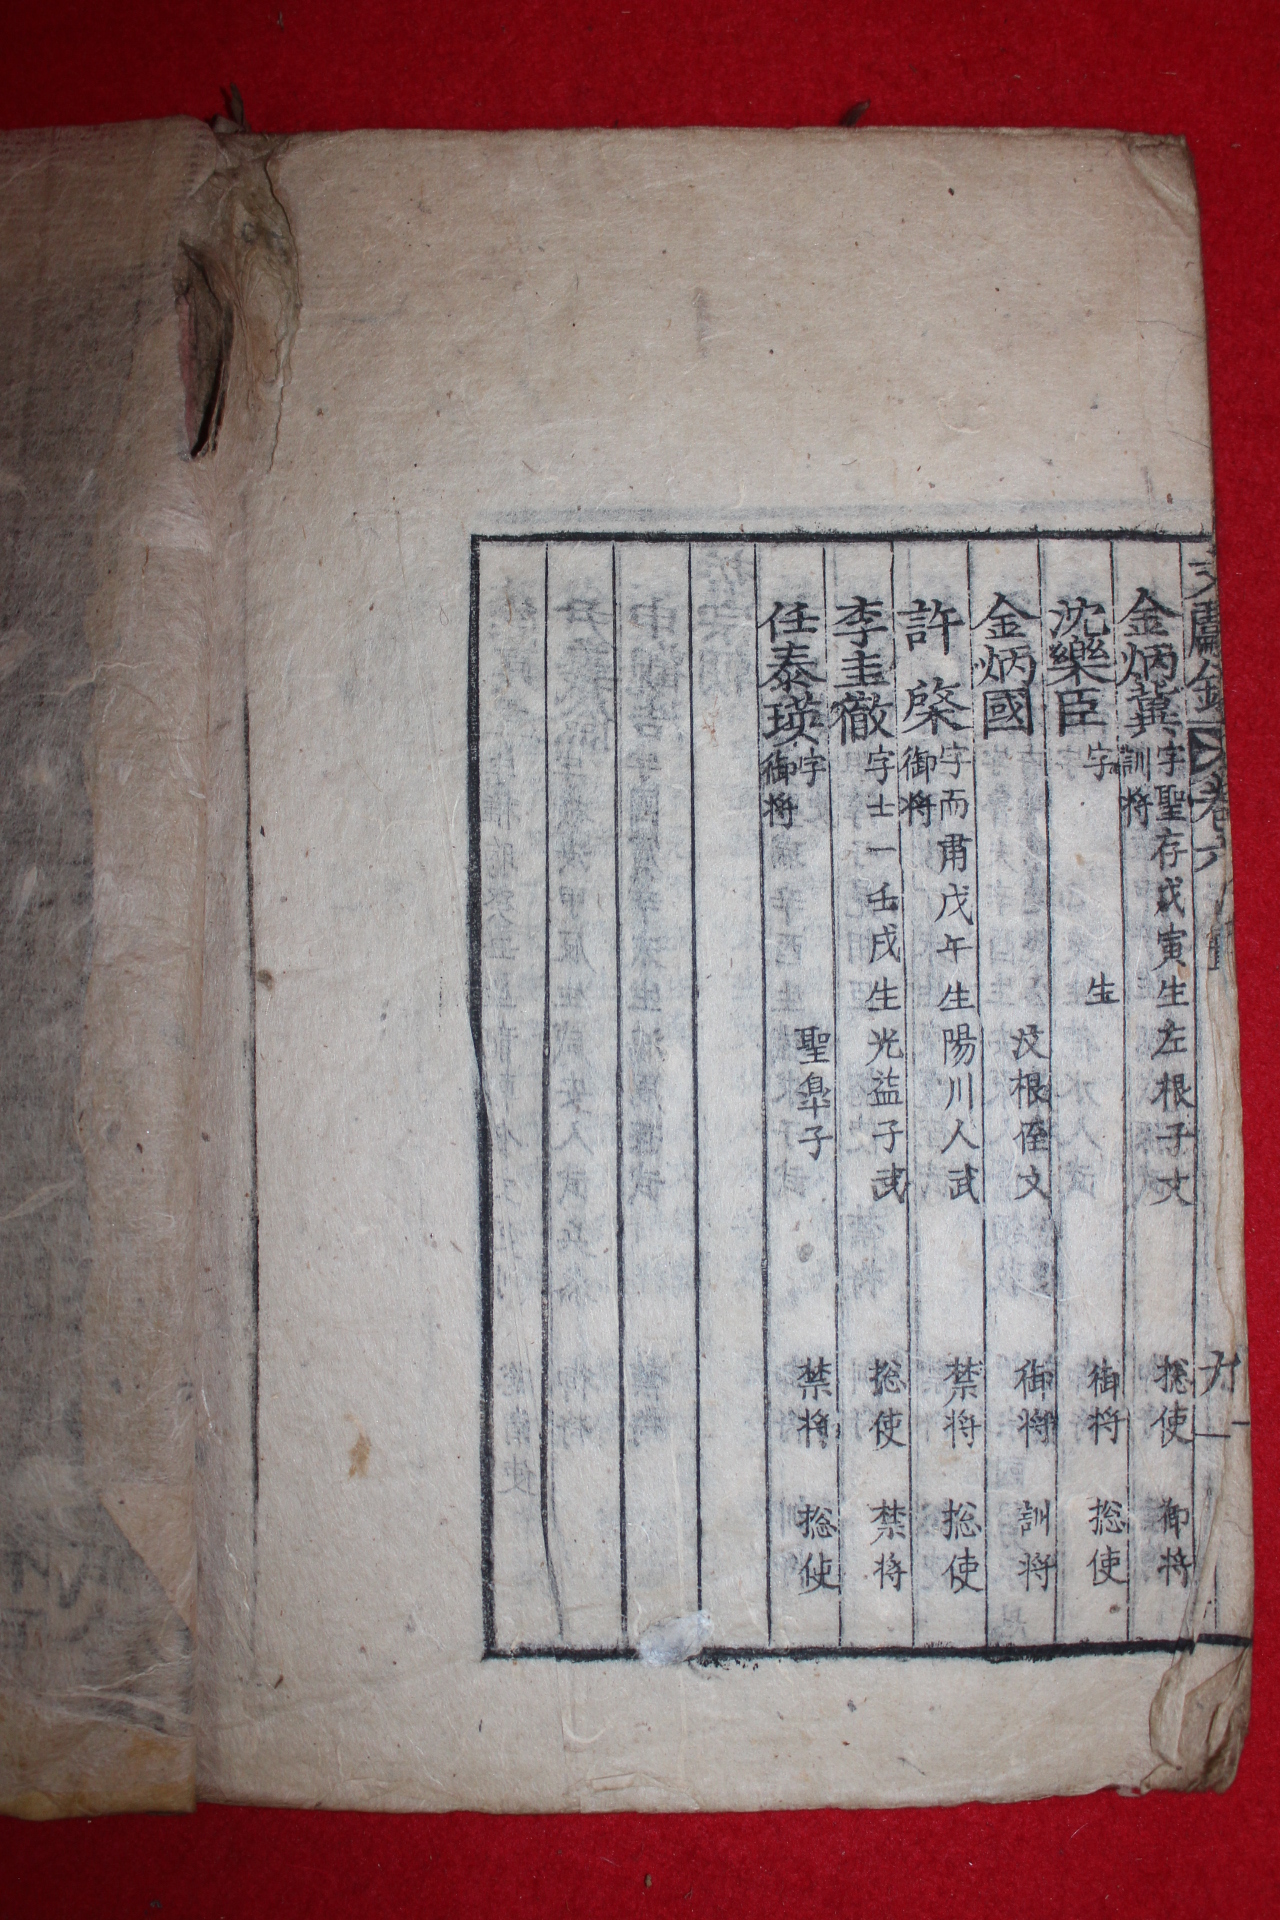 金炳冀 字聖存戊寅生左根子文 摠使 御将
訓将
沈樂臣 字 生 御将 摠使
金炳國 汶根侄文 御将 訓将
許棨 字而肅戊午生陽川人武 禁将 摠使
御将
李圭徹 字士一壬戌生光益子武 摠使 禁将
任泰瑛 字 聖皐子 禁将 摠使
御将